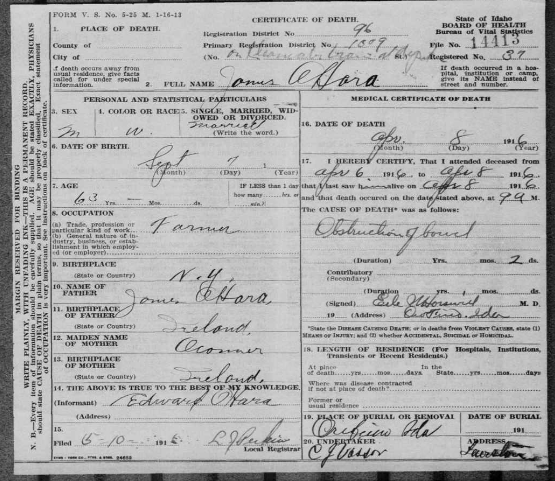 FORM V. S. No. 5-25 M. 1-16-13
CERTIFICATE OF DEATH.
State of Idaho
BOARD OF HEALTH
Bureau of Vital Statistics
1. PLACE OF DEATH.
Registration District No. 96
County of
Primary Registration District No. 1309
File No. 14413
City of (No. St. Registered No. 37
If death occurs away from usual residence, give facts called for under special information.
If death occurred in a hospital, institution or camp, give its NAME instead of street and number.
2. FULL NAME James O'Hara
PERSONAL AND STATISTICAL PARTICULARS
MEDICAL CERTIFICATE OF DEATH.
3. SEX M
4. COLOR OR RACE W.
5. SINGLE, MARRIED, WIDOWED OR DIVORCED. Married (Write the word.)
6. DATE OF BIRTH
Sept 7 1
(Month) (Day) (Year)
7. AGE 63 Yrs. — Mos. ds.
IF LESS than 1 day how many hrs. or min?
8. OCCUPATION Farmer
(a) Trade, profession or particular kind of work
(b) General nature of industry, business, or establishment in which employed (or employer)
9. BIRTHPLACE N.Y.
(State or Country)
10. NAME OF FATHER James O'Hara
11. BIRTHPLACE OF FATHER Ireland,
(State or Country)
12. MAIDEN NAME OF MOTHER Oconner
13. BIRTHPLACE OF MOTHER Ireland,
(State or Country)
14. THE ABOVE IS TRUE TO THE BEST OF MY KNOWLEDGE.
(Informant) Edward O'Hara
(Address)
15.
Filed 5-10- 191
Local Registrar
16. DATE OF DEATH
Apr. 8 1916
(Month) (Day) (Year)
17. I HEREBY CERTIFY, That I attended deceased from
Apr 6 1916 to Apr 8 1916
that I last saw him alive on Apr 8 1916
and that death occurred on the date stated above, at 9 A M.
The CAUSE OF DEATH* was as follows:
Obstruction of bowel
(Duration) Yrs. mos. 2 ds.
Contributory
(Secondary)
(Duration) Yrs. mos. ds.
(Signed) M. D.
19 (Address) Orofino, Idaho
*State the DISEASE CAUSING DEATH; or in deaths from VIOLENT CAUSES, state (1) MEANS OF INJURY; and (2) whether ACCIDENTAL, SUICIDAL OR HOMICIDAL.
18. LENGTH OF RESIDENCE (For Hospitals, Institutions, Transients or Recent Residents.)
At place of death yrs. mos. days. In the State yrs. mos. days
Where was disease contracted if not at place of death?
Former or usual residence
19. PLACE OF BURIAL OR REMOVAL
DATE OF BURIAL
Orofino Ida 191
20. UNDERTAKER
ADDRESS
MARGIN RESERVED FOR BINDING
WRITE PLAINLY, WITH UNFADING INK—THIS IS A PERMANENT RECORD.
N. B.—Every item of information should be carefully supplied. AGE should be stated EXACTLY. PHYSICIANS should state CAUSE OF DEATH in plain terms, so that it may be properly classified. Exact statement of OCCUPATION is very important. See instructions on back of certificate.